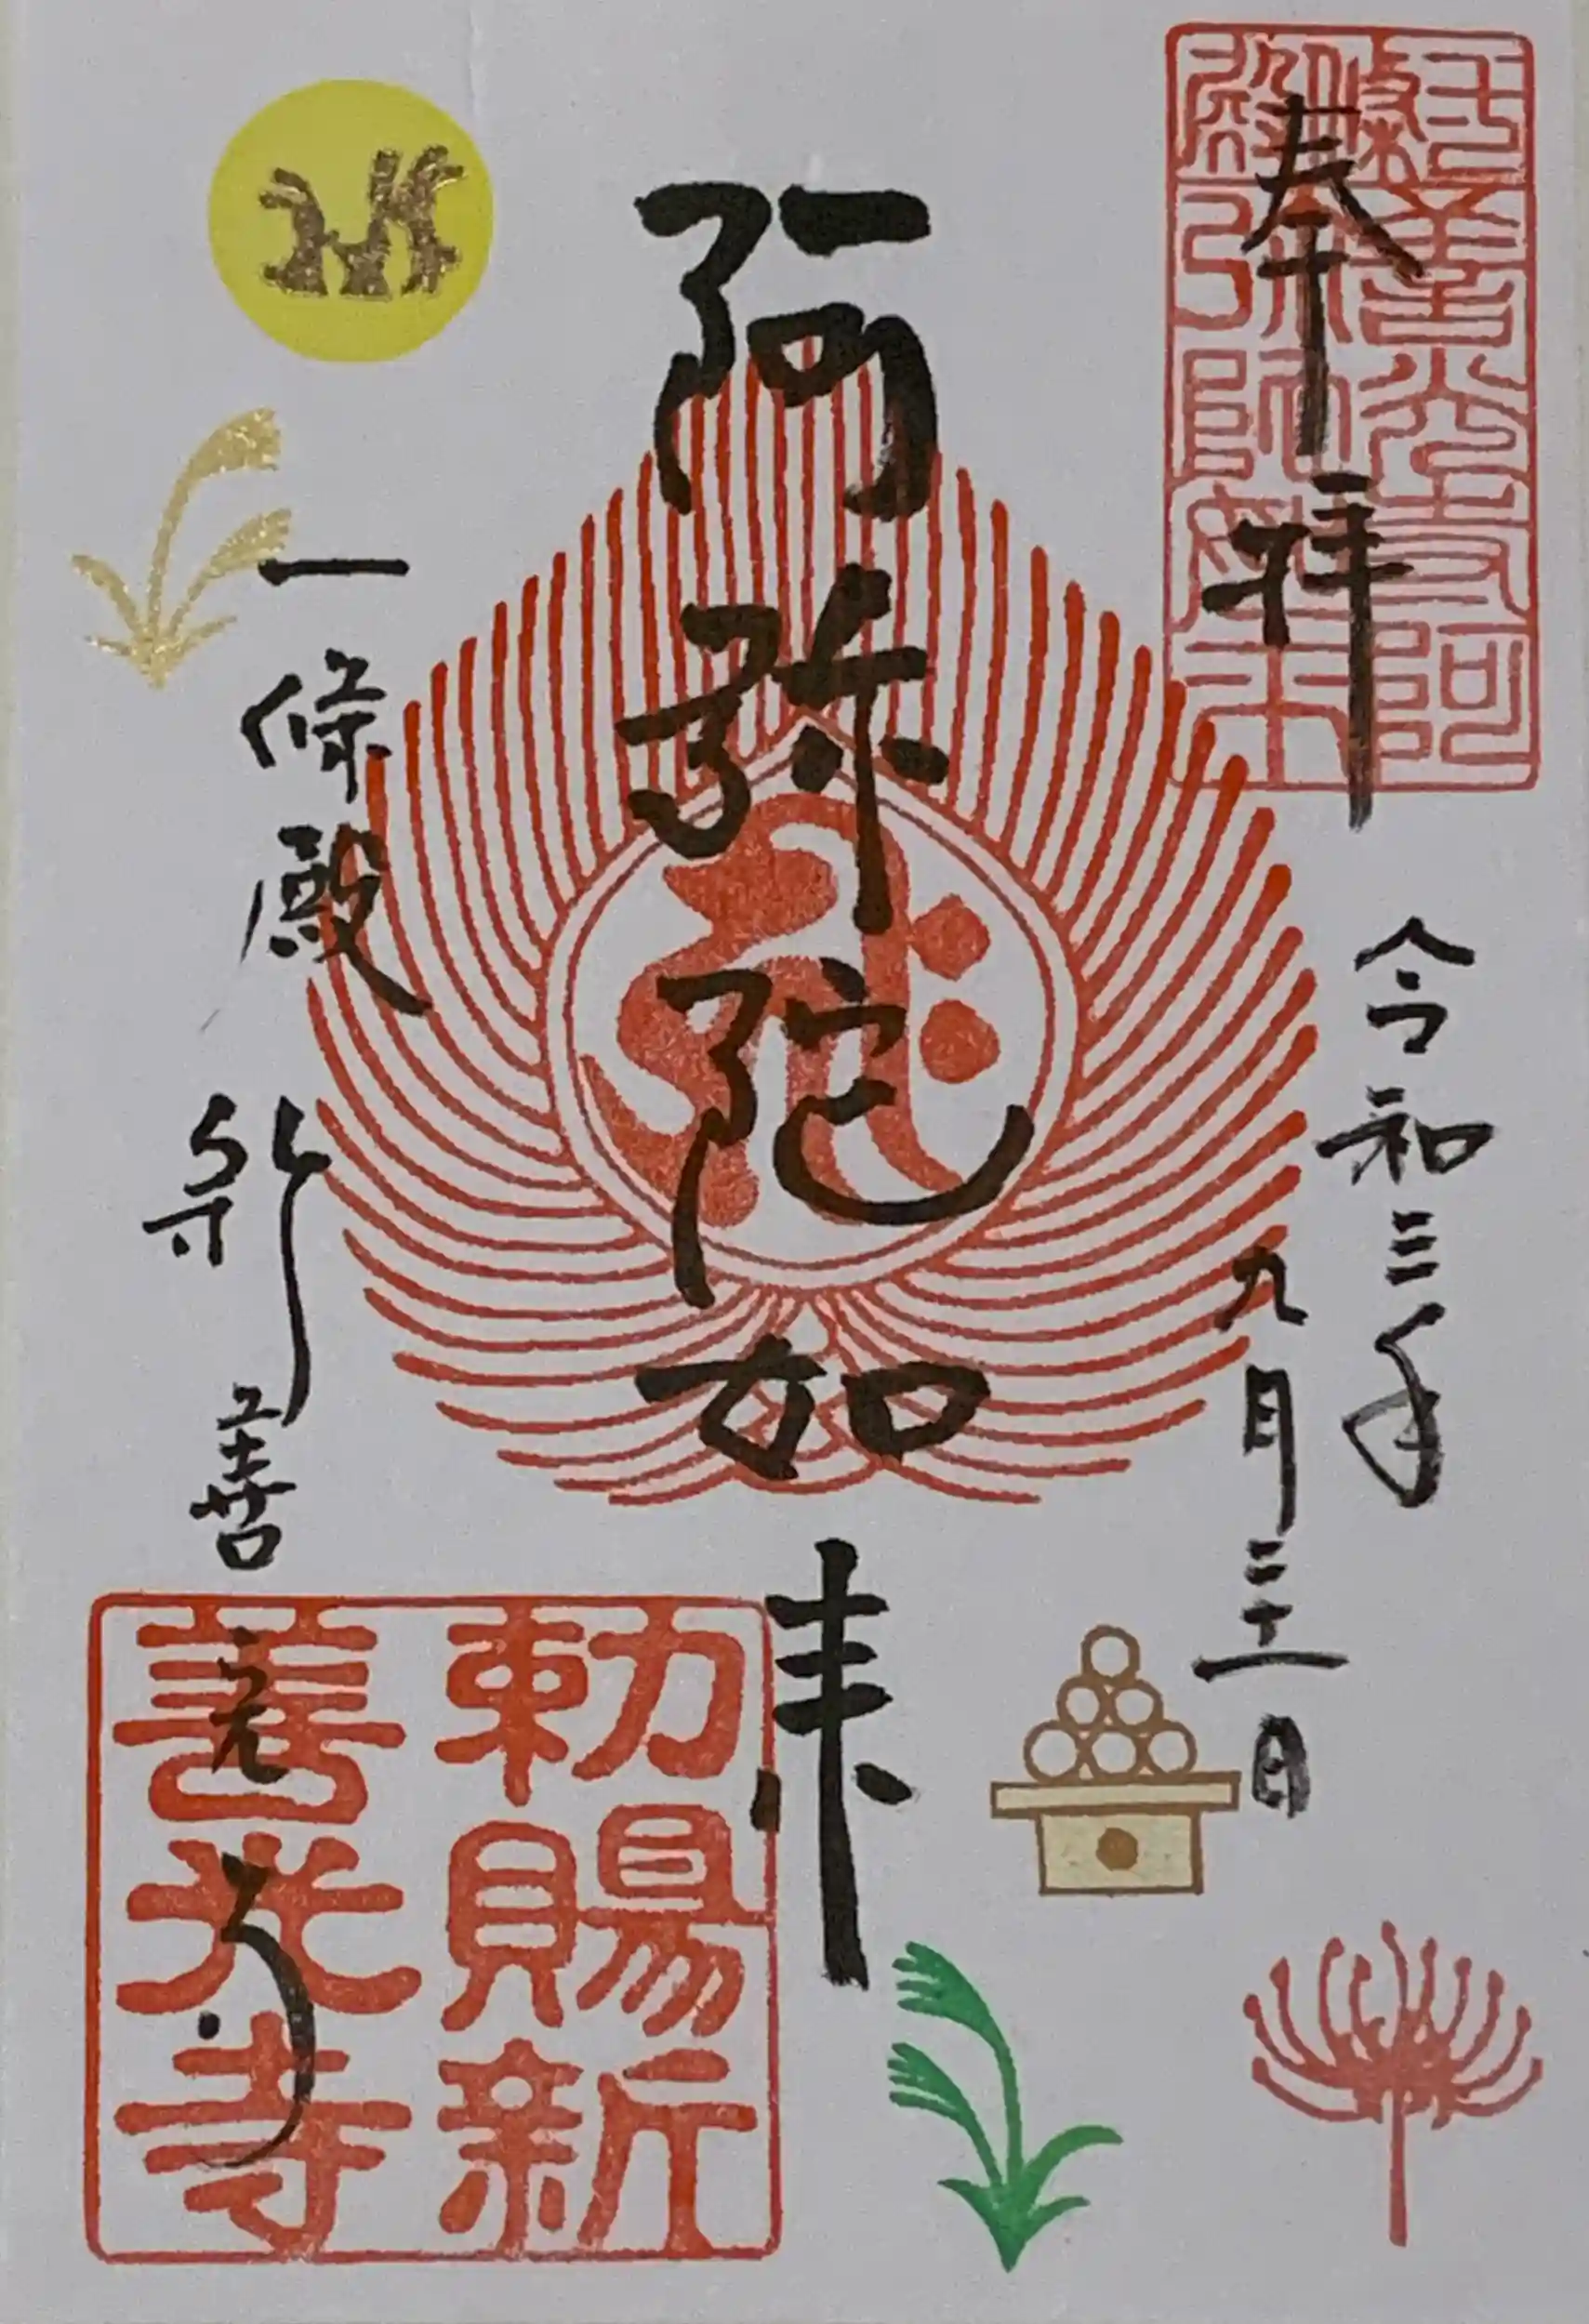 奉拝
令和三年
九月二十一日
阿弥陀如来
一條殿
新善光寺
善光寺阿
弥陀如来
勅賜新
善光寺